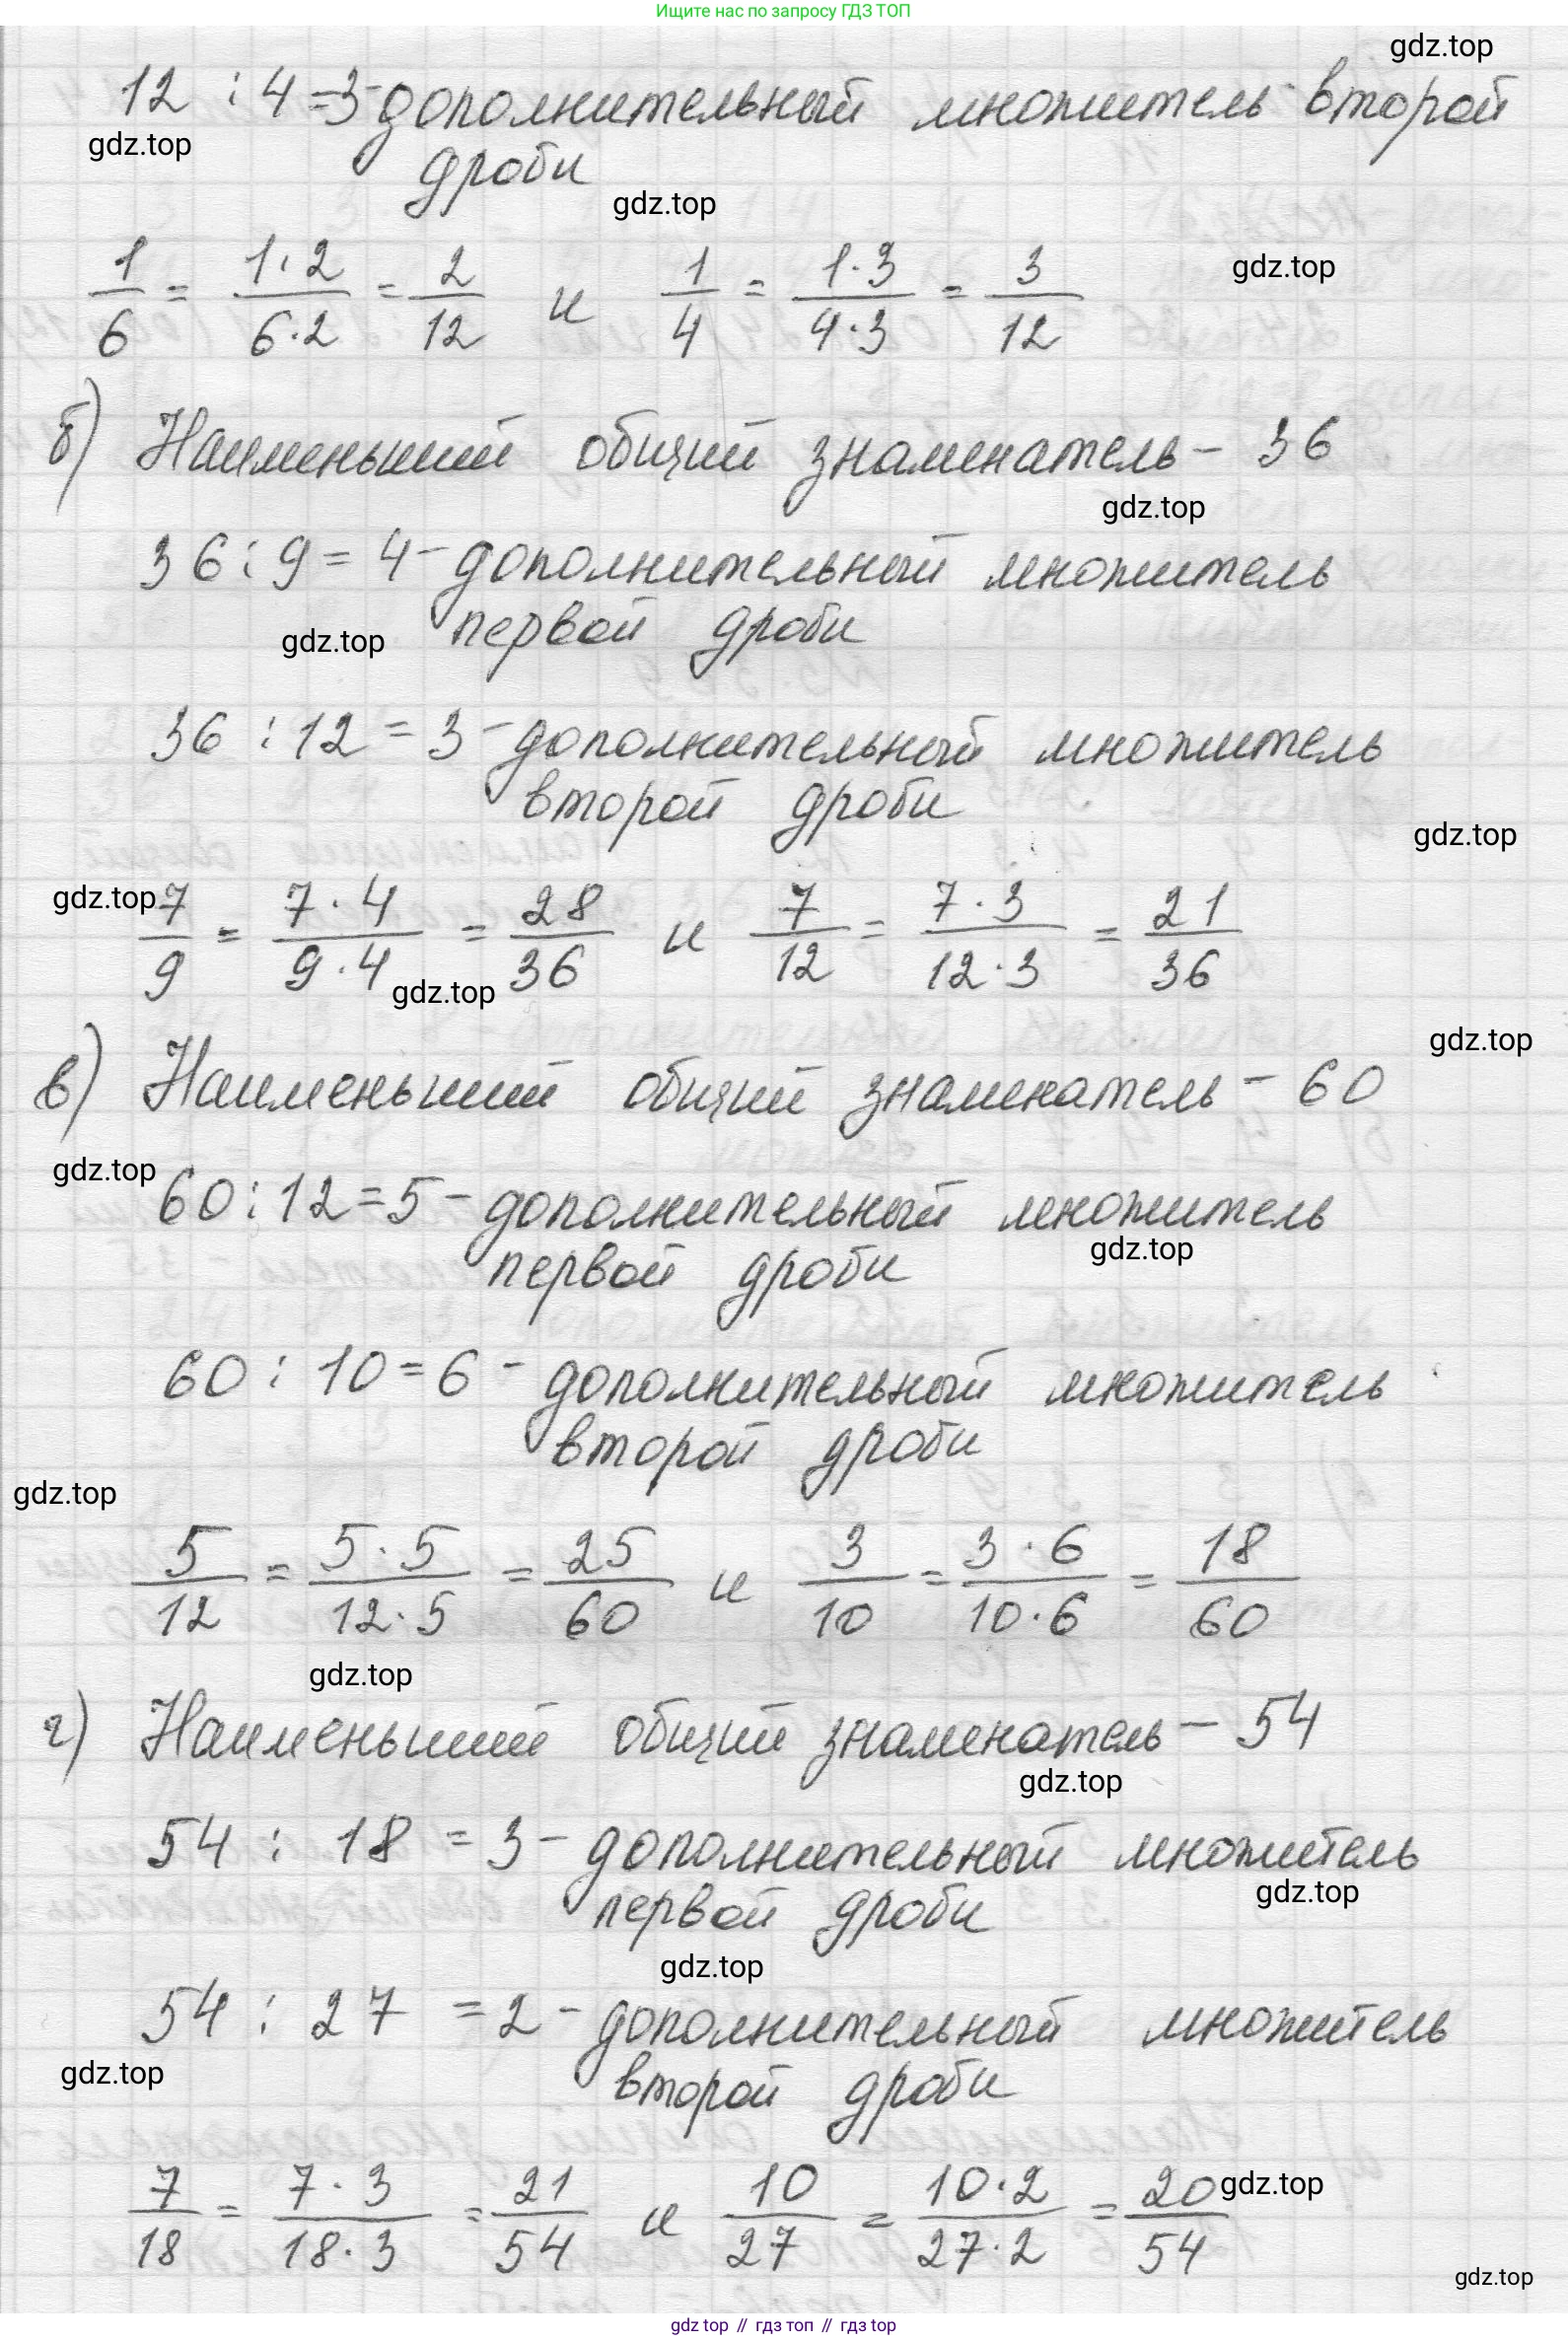 Ищите нас по запросу ГДЗ ТОП
gdz.top
12 : 4 = 3 - дополнительный множитель второй
gdz.top
дроби
gdz.top
1/6 = 1·2/6·2 = 2/12 и 1/4 = 1·3/4·3 = 3/12
gdz.top
б) Наименьший общий знаменатель - 36
gdz.top
36 : 9 = 4 - дополнительный множитель
первой дроби
gdz.top
36 : 12 = 3 - дополнительный множитель
второй дроби
gdz.top
gdz.top
7/9 = 7·4/9·4 = 28/36 и 7/12 = 7·3/12·3 = 21/36
gdz.top
gdz.top
в) Наименьший общий знаменатель - 60
gdz.top
60 : 12 = 5 - дополнительный множитель
gdz.top
первой дроби
60 : 10 = 6 - дополнительный множитель
второй дроби
gdz.top
5/12 = 5·5/12·5 = 25/60 и 3/10 = 3·6/10·6 = 18/60
gdz.top
г) Наименьший общий знаменатель - 54
gdz.top
54 : 18 = 3 - дополнительный множитель
gdz.top
первой дроби
gdz.top
54 : 27 = 2 - дополнительный множитель
gdz.top
второй дроби
7/18 = 7·3/18·3 = 21/54 и 10/27 = 10·2/27·2 = 20/54
gdz.top
gdz.top
gdz top // гдз топ // гдз.top